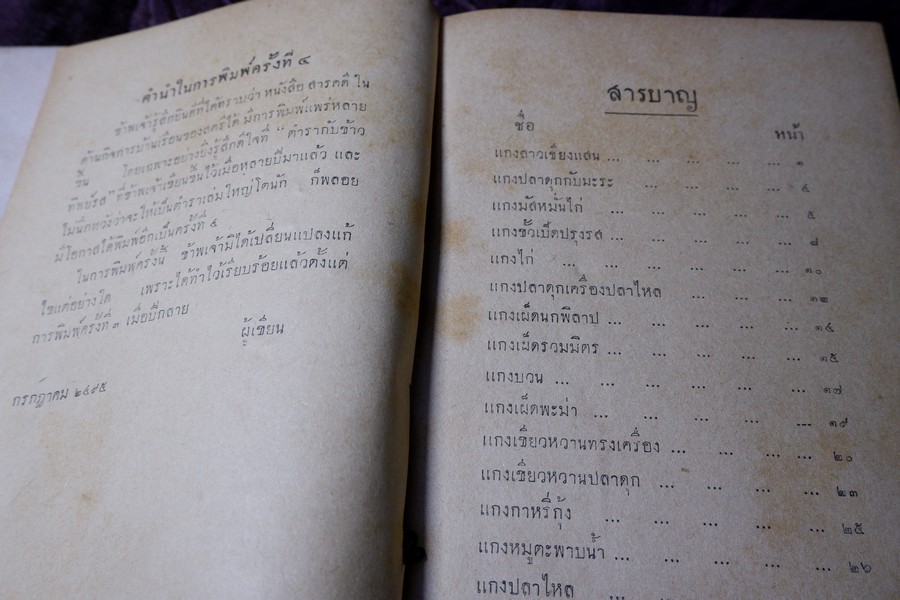 คำนำในการพิมพ์ครั้งที่ ๔
ข้าพเจ้ารู้สึกยินดีที่ได้ทราบว่า หนังสือ สารคดี ใน
ด้านกิจการบ้านเรือนของสตรีได้ มีการพิมพ์แพร่หลาย
ขึ้น โดยเฉพาะอย่างยิ่งรู้สึกดีใจที่ "ตำรากับข้าว
ทิพย์รส" ที่ข้าพเจ้าเขียนขึ้นไว้เมื่อหลายปีมาแล้ว และ
ไม่นึกหวังว่าจะให้เป็นตำราเล่มใหญ่โตนัก ก็พลอย
มีโอกาสได้พิมพ์อีกเป็นครั้งที่ ๔
ในการพิมพ์ครั้งนี้ ข้าพเจ้ามิได้เปลี่ยนแปลงแก้
ไขแต่อย่างใด เพราะได้ทำไว้เรียบร้อยแล้วตั้งแต่
การพิมพ์ครั้งที่ ๓ เมื่อปีกลาย
ผู้เขียน
กรกฎาคม ๒๔๙๕
สารบาญ
ชื่อ หน้า
แกงลาวเชียงแสน ... ... ... ... ... ๑
แกงปลาดุกกับมะระ ... ... ... ... ๔
แกงมัสหมั่นไก่ ... ... ... ... ... ๕
แกงขั้วเป็ดปรุงรส ... ... ... ... ... ๘
แกงไก่ ... ... ... ... ... ๑๐
แกงปลาดุกเครื่องปลาไหล ... ... ... ... ๑๒
แกงเผ็ดนกพิลาป ... ... ... ... ๑๔
แกงเผ็ดรวมมิตร ... ... ... ... ... ๑๕
แกงบวน ... ... ... ... ... ๑๗
แกงเผ็ดพะม่า ... ... ... ... ... ๑๙
แกงเขียวหวานทรงเครื่อง ... ... ... ... ๒๐
แกงเขียวหวานปลาดุก ... ... ... ... ๒๓
แกงกาหรี่กุ้ง ... ... ... ... ... ๒๕
แกงหมูตะพาบน้ำ ... ... ... ... ... ๒๖
แกงปลาไหล ... ... ... ...